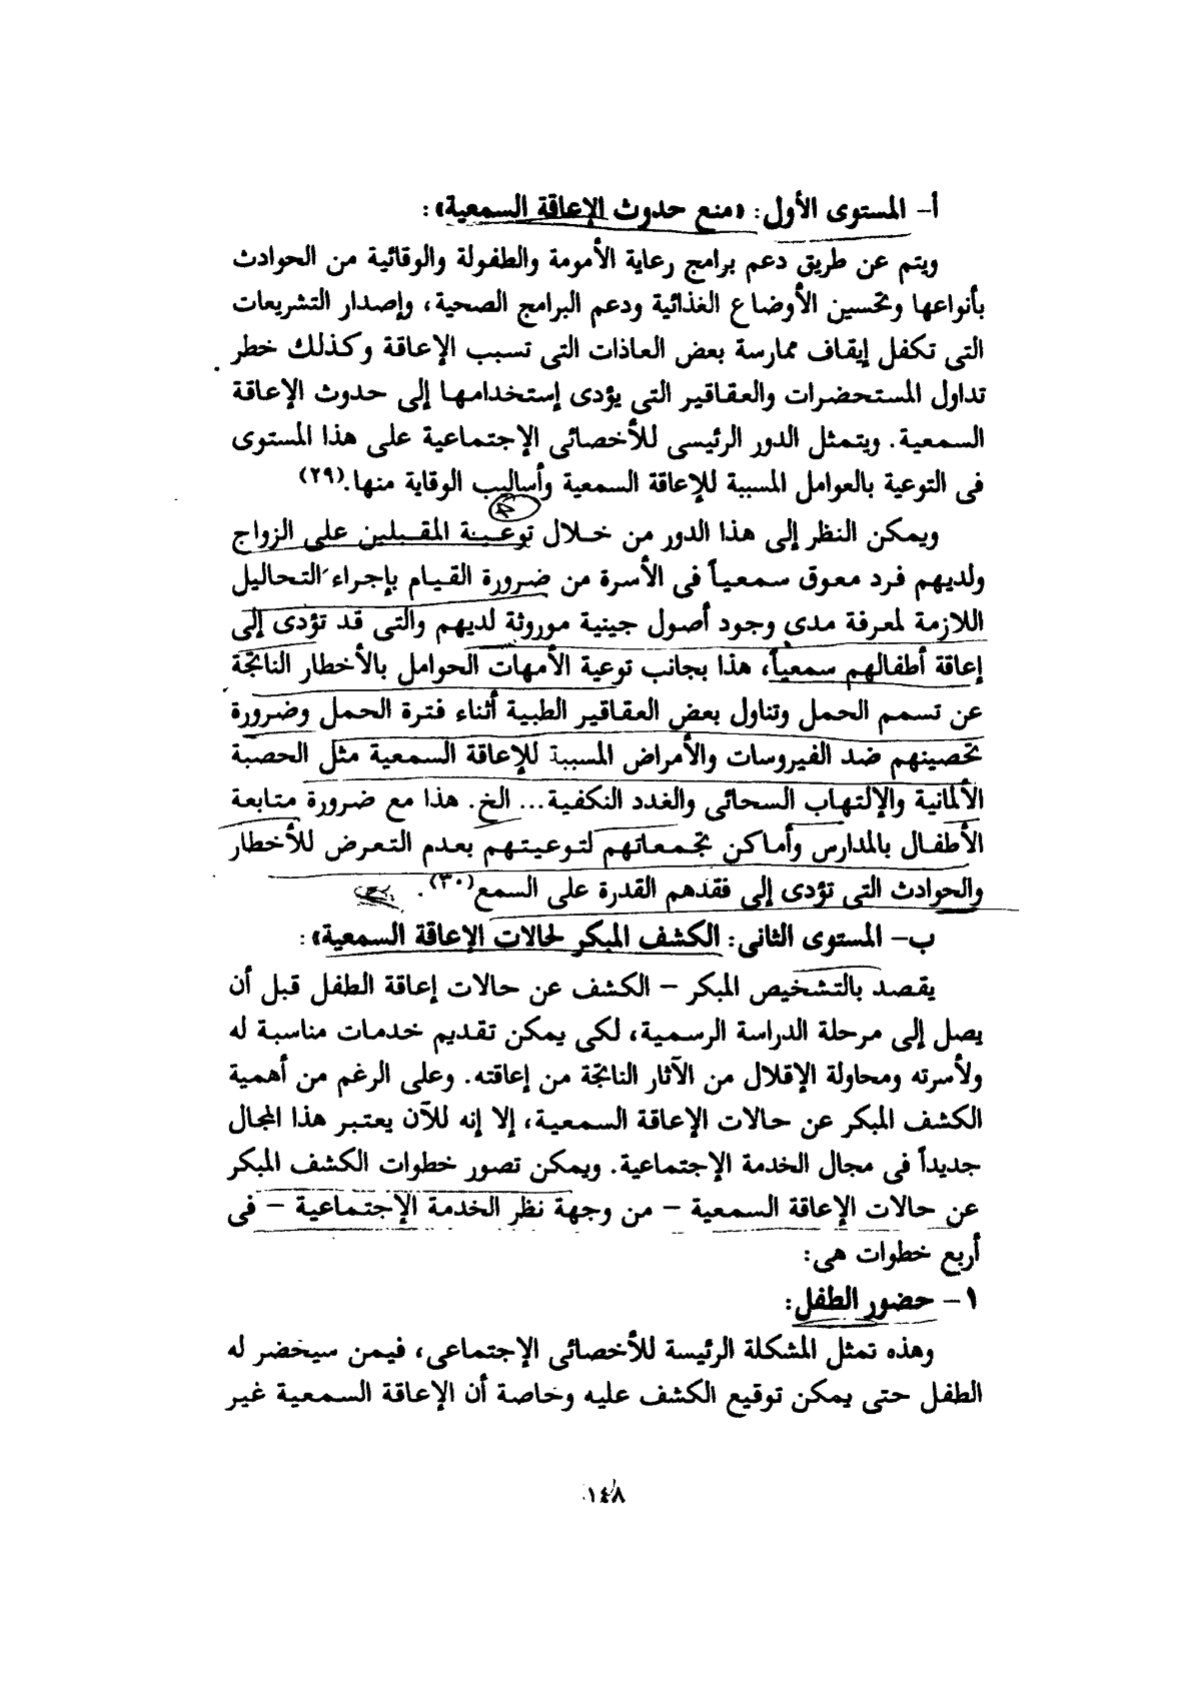 أ- المستوى الأول: «منع حدوث الإعاقة السمعية»:
ويتم عن طريق دعم برامج رعاية الأمومة والطفولة والوقائية من الحوادث
بأنواعها وتحسين الأوضاع الغذائية ودعم البرامج الصحية، وإصدار التشريعات
التى تكفل إيقاف ممارسة بعض العاذات التى تسبب الإعاقة وكذلك خطر
تداول المستحضرات والعقاقير التى يؤدى إستخدامها إلى حدوث الإعاقة
السمعية. ويتمثل الدور الرئيسى للأخصائى الإجتماعية على هذا المستوى
فى التوعية بالعوامل المسببة للإعاقة السمعية وأساليب الوقاية منها.(٢٩)
ويمكن النظر إلى هذا الدور من خلال توعية المقبلين على الزواج
ولديهم فرد معوق سمعياً فى الأسرة من ضرورة القيام بإجراء التحاليل
اللازمة لمعرفة مدى وجود أصول جينية موروثة لديهم والتى قد تؤدى إلى
إعاقة أطفالهم سمعياً، هذا بجانب توعية الأمهات الحوامل بالأخطار الناتجة
عن تسمم الحمل وتناول بعض العقاقير الطبية أثناء فترة الحمل وضرورة
تحصينهم ضد الفيروسات والأمراض المسببة للإعاقة السمعية مثل الحصبة
الألمانية والإلتهاب السحائى والغدد النكفية... الخ. هذا مع ضرورة متابعة
الأطفال بالمدارس وأماكن تجمعاتهم لتوعيتهم بعدم التعرض للأخطار
والحوادث التى تؤدى إلى فقدهم القدرة على السمع(٣٠).
ب- المستوى الثانى: الكشف المبكر لحالات الإعاقة السمعية»:
يقصد بالتشخيص المبكر - الكشف عن حالات إعاقة الطفل قبل أن
يصل إلى مرحلة الدراسة الرسمية، لكى يمكن تقديم خدمات مناسبة له
ولأسرته ومحاولة الإقلال من الآثار الناتجة من إعاقته. وعلى الرغم من أهمية
الكشف المبكر عن حالات الإعاقة السمعية، إلا إنه للآن يعتبر هذا المجال
جديداً فى مجال الخدمة الإجتماعية. ويمكن تصور خطوات الكشف المبكر
عن حالات الإعاقة السمعية - من وجهة نظر الخدمة الإجتماعية - فى
أربع خطوات هى:
١- حضور الطفل:
وهذه تمثل المشكلة الرئيسة للأخصائى الإجتماعى، فيمن سيحضر له
الطفل حتى يمكن توقيع الكشف عليه وخاصة أن الإعاقة السمعية غير
١٤٨